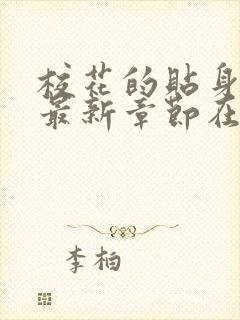 校花的貼身
最新章節在
李柏